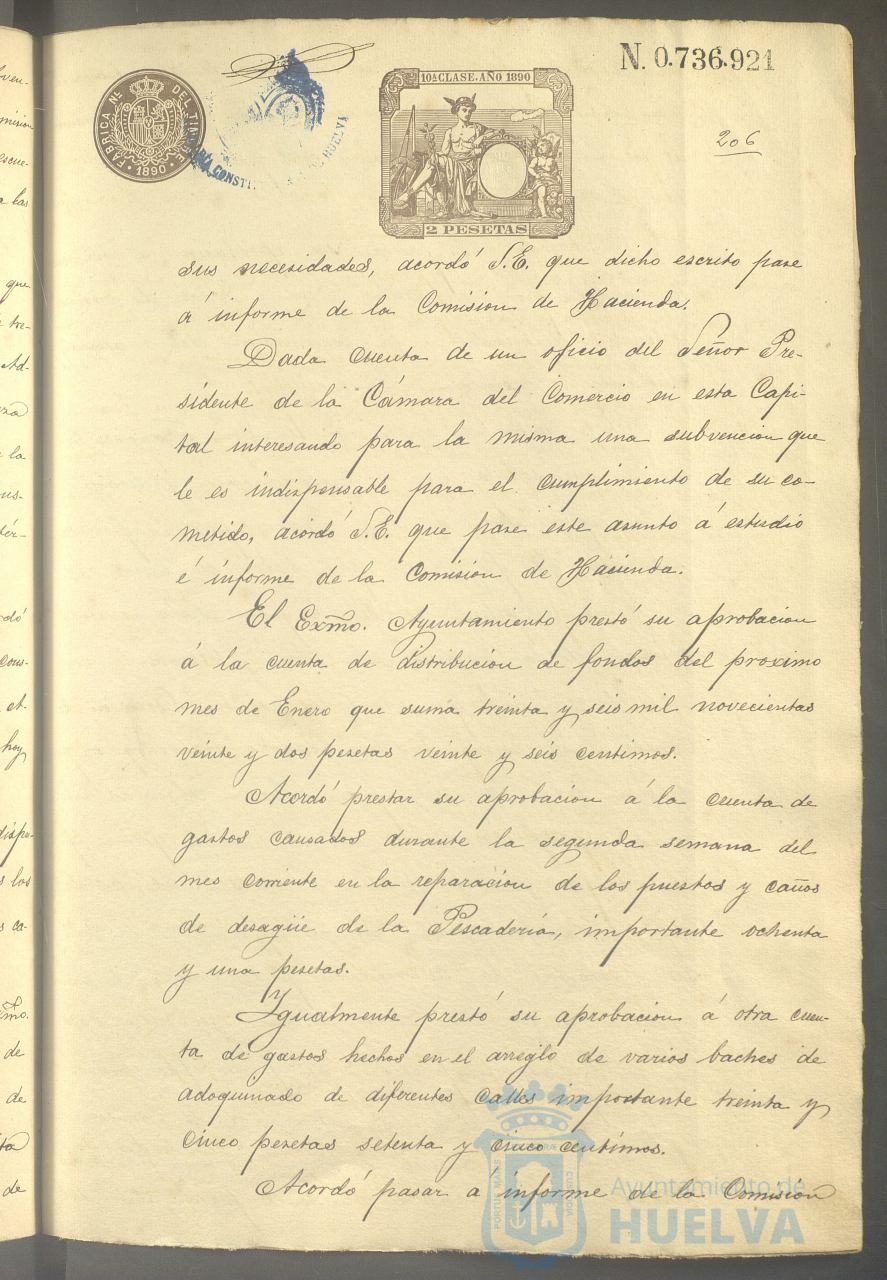 N. 0.736.921
FABRICA NL. DEL TIMBRE
1890
CONSTI HUELVA
10ª CLASE. AÑO 1890
2 PESETAS
206
sus necesidades, acordó S.E. que dicho escrito pase
á informe de la Comision de Hacienda.
Dada cuenta de un oficio del Señor Pre-
sidente de la Cámara del Comercio en esta Capi-
tal interesando para la misma una subvencion que
le es indispensable para el cumplimiento de su co-
metido, acordó S.E. que pase este asunto á estudio
é informe de la Comision de Hacienda.
El Exmo. Ayuntamiento prestó su aprobacion
á la cuenta de distribucion de fondos del proximo
mes de Enero que suma treinta y seis mil novecientas
veinte y dos pesetas veinte y seis centimos.
Acordó prestar su aprobacion á la cuenta de
gastos causados durante la segunda semana del
mes corriente en la reparacion de los puestos y caños
de desagüe de la Pescadería, importante ochenta
y una pesetas.
Igualmente prestó su aprobacion á otra cuen-
ta de gastos hechos en el arreglo de varios baches de
adoquinado de diferentes calles importante treinta y
cinco pesetas setenta y cinco centimos.
Acordó pasar á informe de la Comisión
Ayuntamiento de
HUELVA